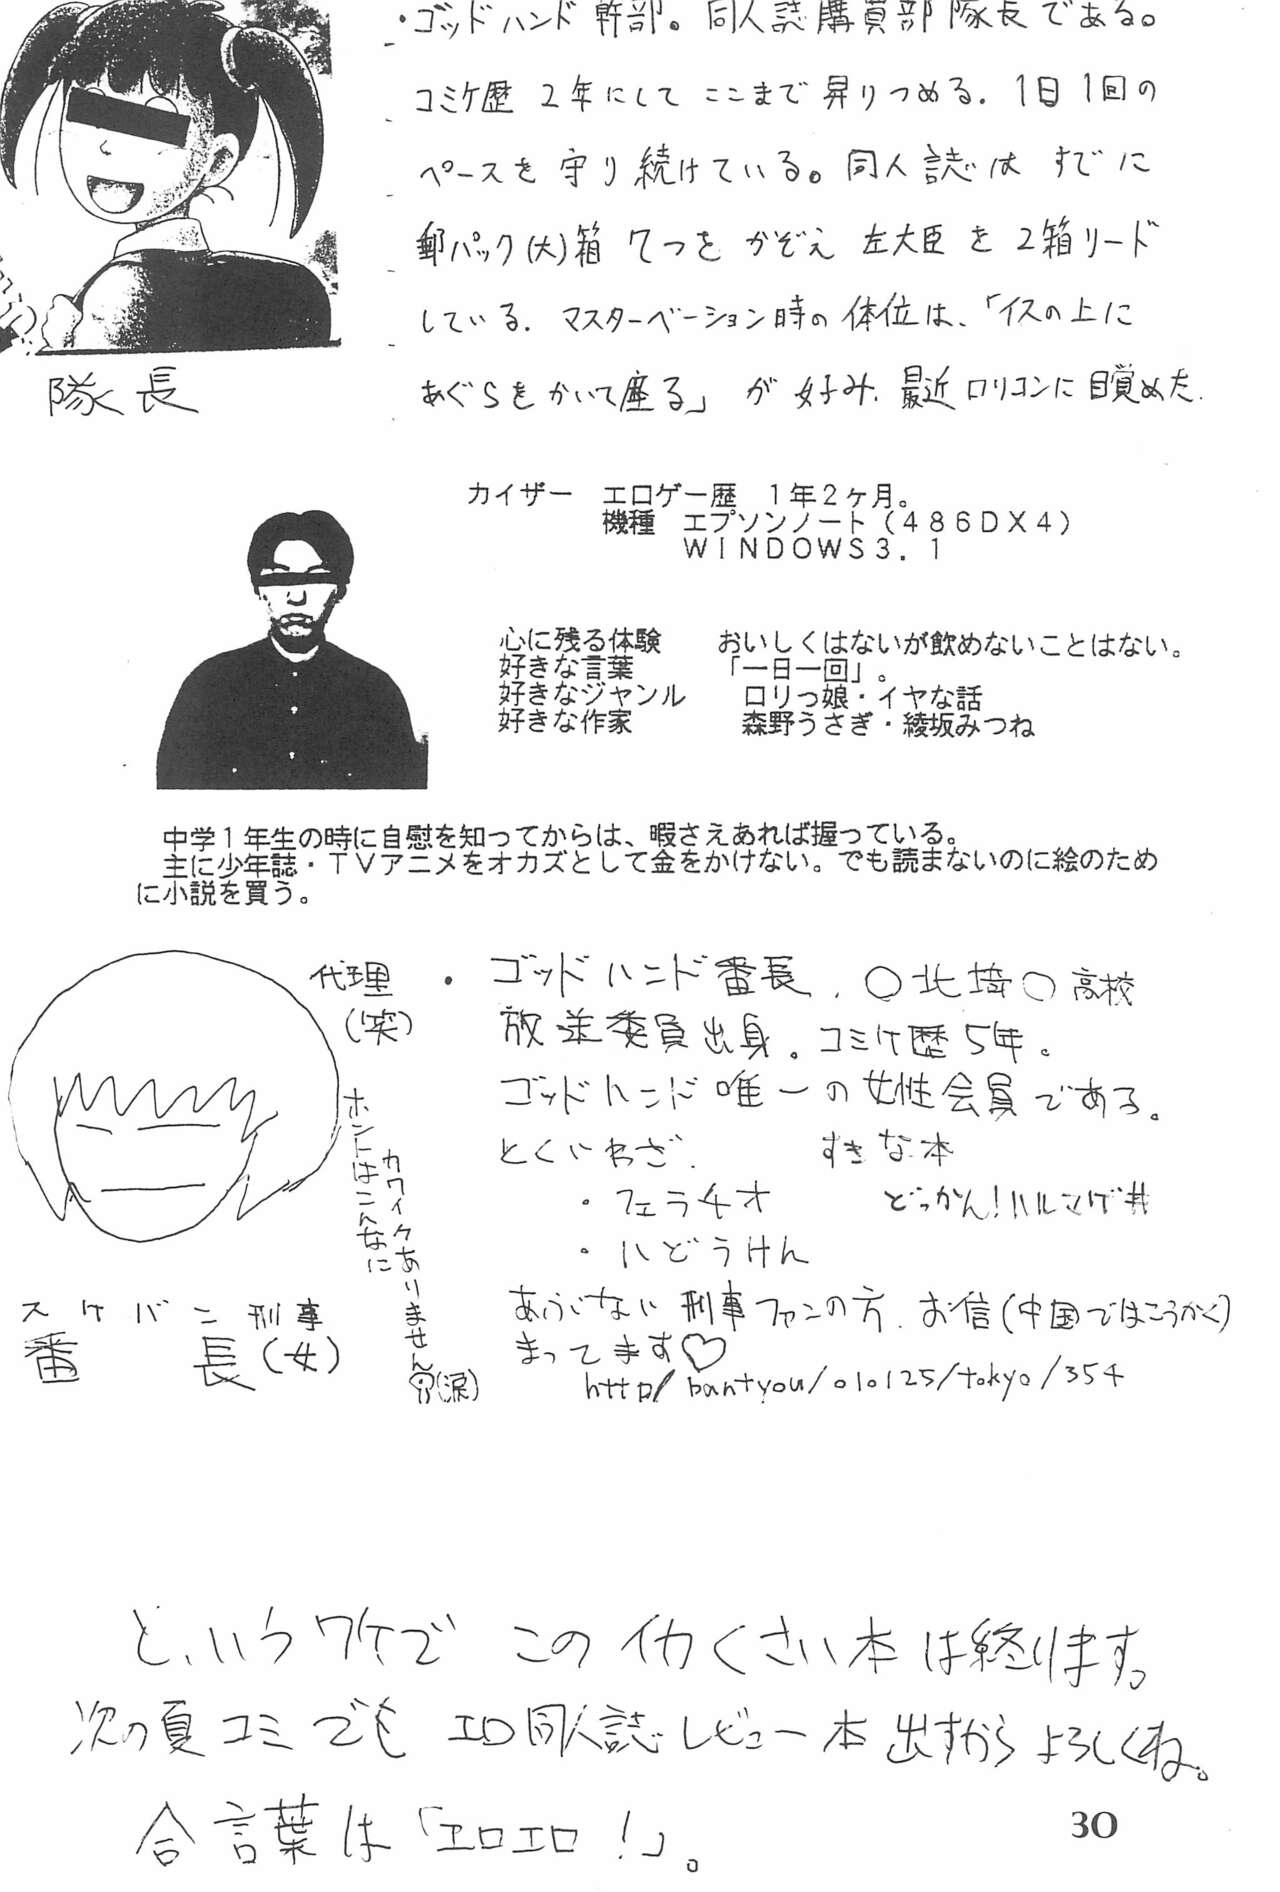 ・ゴッドハンド幹部。同人誌購買部隊長である。
コミケ歴 2年にして ここまで昇りつめる. 1日1回の
ペースを守り続けている。同人誌は すでに
郵パック(大)箱 7つを かぞえ 左大臣を 2箱リード
している. マスターベーション時の体位は、「イスの上に
あぐらをかいて座る」が好み. 最近ロリコンに目覚めた.
隊長
カイザー エロゲー歴 1年2ヶ月。
機種 エプソンノート(486DX4)
WINDOWS3.1
心に残る体験 おいしくはないが飲めないことはない。
好きな言葉 「一日一回」。
好きなジャンル ロリっ娘・イヤな話
好きな作家 森野うさぎ・綾坂みつね
中学1年生の時に自慰を知ってからは、暇さえあれば握っている。
主に少年誌・TVアニメをオカズとして金をかけない。でも読まないのに絵のため
に小説を買う。
代理
(笑)
・ゴッドハンド番長. ○北埼○高校
放送委員出身。コミケ歴5年。
ゴッドハンド唯一の女性会員である。
とくいわざ. すきな本
・フェラチオ どっかん!ハルマゲ丼
・ハどうけん
あぶない刑事ファンの方. お信(中国ではこうかく)
まってます♡
http/bantyou/010125/tokyo/354
ホントはこんなに
カワイクありません
(涙)
スケバン刑事
番長(女)
と、いうワケで このイカくさい本は終ります。
次の夏コミでも エロ同人誌レビュー本出すからよろしくね。
合言葉は「エロエロ!」。
30